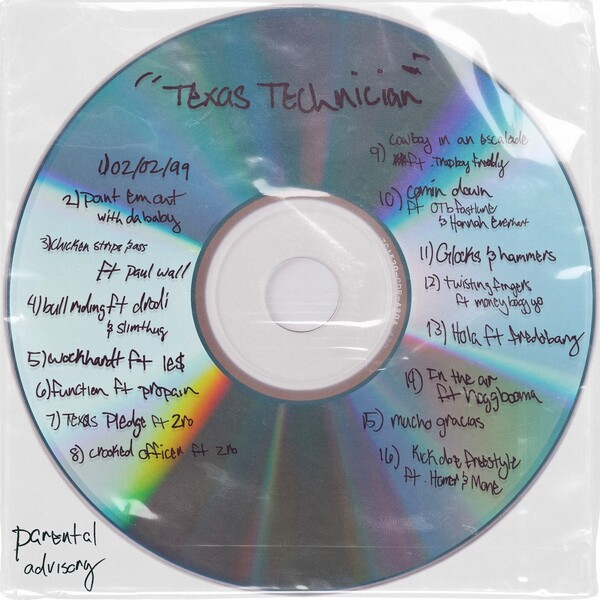 "Texas Technician"
1) 02/02/99
2) Point Em out
with dababy
3) chicken strips sass
ft paul wall
4) bull riding ft drodi
& slimthug
5) wockhardt ft le$
6) function ft propain
7) TEXAS Pledge ft Zro
8) crooked officer ft zro
9) cowboy in an escalade
ft. Trapboy freddy
10) comin down
ft OTb fastlane
& Hannah Everhart
11) Glocks & hammers
12) twisting fingers
ft moneybagg yo
13) Hola ft fredobang
14) In the air
ft hoggbooma
15) mucho gracias
16) Kick doe freestyle
ft. Homer & Mone
parental
advisory